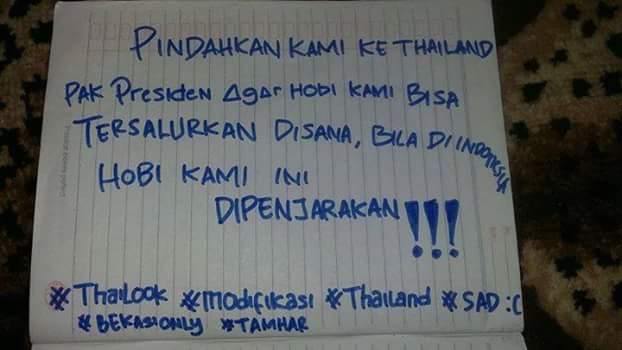 PINDAHKAN KAMI KE THAILAND
PAK Presiden Agar HOBI KAMI BISA
TERSALURKAN DISANA, BILA DI INDONESIA
HOBI KAMI INI
DIPENJARAKAN!!!
#ThaiLook #modifikasi #Thailand #SAD :C
#BEKASIONLY #TAMHAR